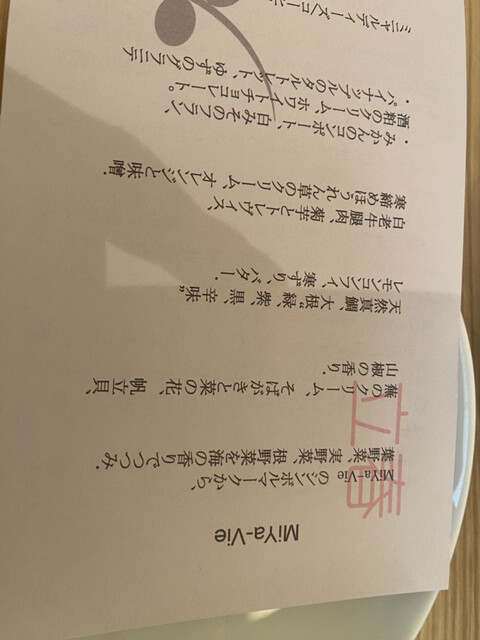 MiYa-Vie
立春
MiYa-Vie のシンボルマークから、
葉野菜、実野菜、根野菜を海の香りでつつみ.
蕪のクリーム、そばがきと菜の花、帆立貝、
山椒の香り.
天然真鯛、大根“緑、紫、黒、辛味”
レモンコンフィ、寒ずり、バター.
白老牛腿肉、菊芋とトレヴィス、
寒締めほうれん草のクリーム、オレンジと味噌.
・みかんのコンポート、白みそのフラン、
酒粕のクリーム、ホワイトチョコレート。
・パイナップルのタルトレット、ゆずのグラニテ
ミニャルディーズ